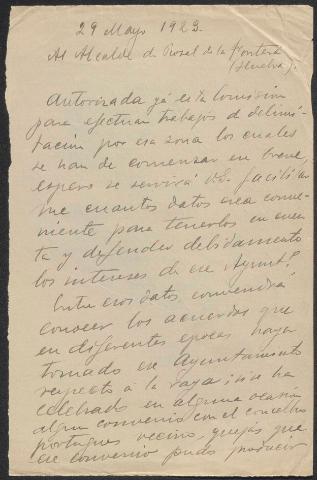 29 Mayo 1923.
Al Alcalde de Rosal de la Frontera
(Huelva).
Autorizada ya esta Comisión
para efectuar trabajos de delimi-
tación por esa zona los cuales
se han de comenzar en breve,
espero se servirá V.S. facilitar
me cuantos datos crea conve-
niente para tenerlos en cuen
ta y defender debidamente
los intereses de ese Ayuntº.
Entre esos datos convendrá
conocer los acuerdos que
en diferentes epocas haya
tomado ese Ayuntamiento
respecto á la raya i si se ha
celebrado en alguna ocasión
algun convenio con el concelho
portugués vecino, quejas que
ese convenio pudo producir